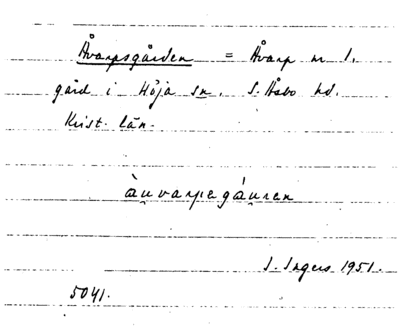 Åvarpsgården = Åvarp nr 1,
gård i Höja sn, S. Åsbo hd.
Krist. län.
àu̯varpegáu̯ren
I. Ingers 1951.
5041.